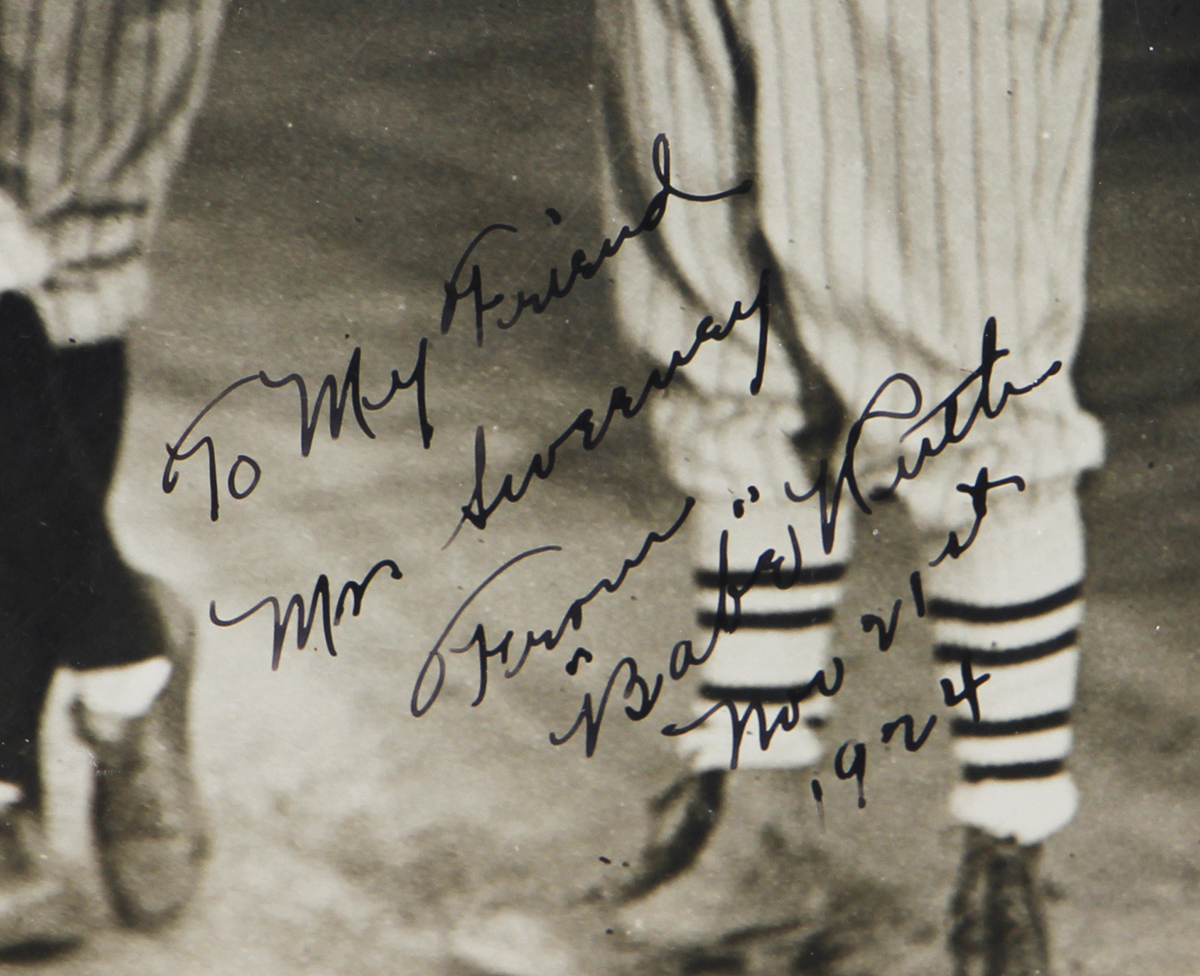 To My Friend
Mr Sweeney
From
"Babe" Ruth
Nov 21st
1924